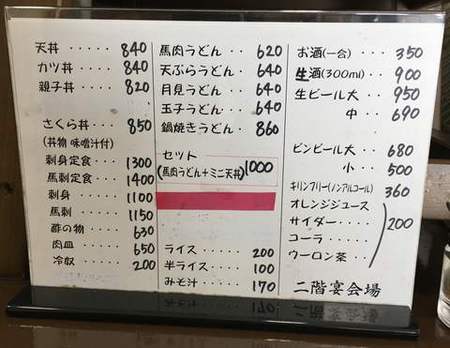 天丼 ····· 840
カツ丼 ···· 840
親子丼 ···· 820
さくら丼 ··· 850
(丼物 味噌汁付)
刺身定食 ··· 1300
馬刺定食 ··· 1400
刺身 ····· 1100
馬刺 ····· 1150
酢の物 ···· 630
肉皿 ····· 650
冷奴 ····· 200
馬肉うどん ·· 620
天ぷらうどん · 640
月見うどん ·· 640
玉子うどん ·· 640
鍋焼きうどん · 860
セット
(馬肉うどん+ミニ天丼) 1000
ライス ···· 200
半ライス ··· 100
みそ汁 ···· 170
お酒(一合) ··· 350
生酒(300ml) ·· 900
生ビール大 ·· 950
中 ·· 690
ビンビール大 ·· 680
小 ·· 500
キリンフリー(ノンアルコール) 360
オレンジジュース
サイダー ····
コーラ ·····
ウーロン茶 ··
200
二階宴会場